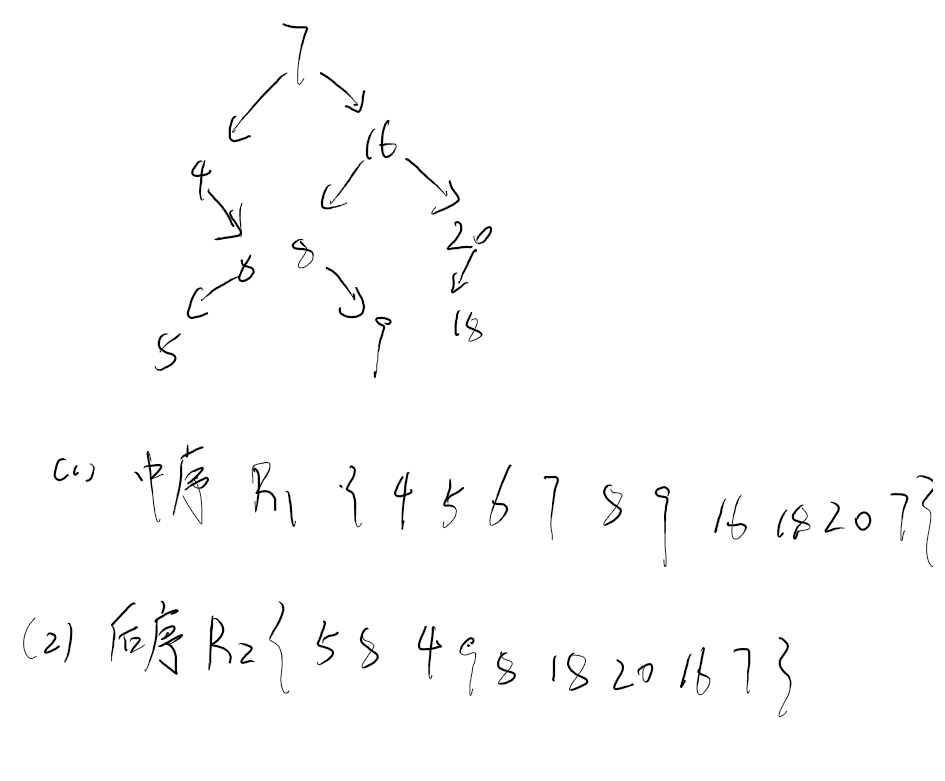 7
4 16
6 8 20
5 9 18
(1) 中序 R1 {4 5 6 7 8 9 16 18 20 7}
(2) 后序 R2 {5 8 4 9 8 18 20 16 7}